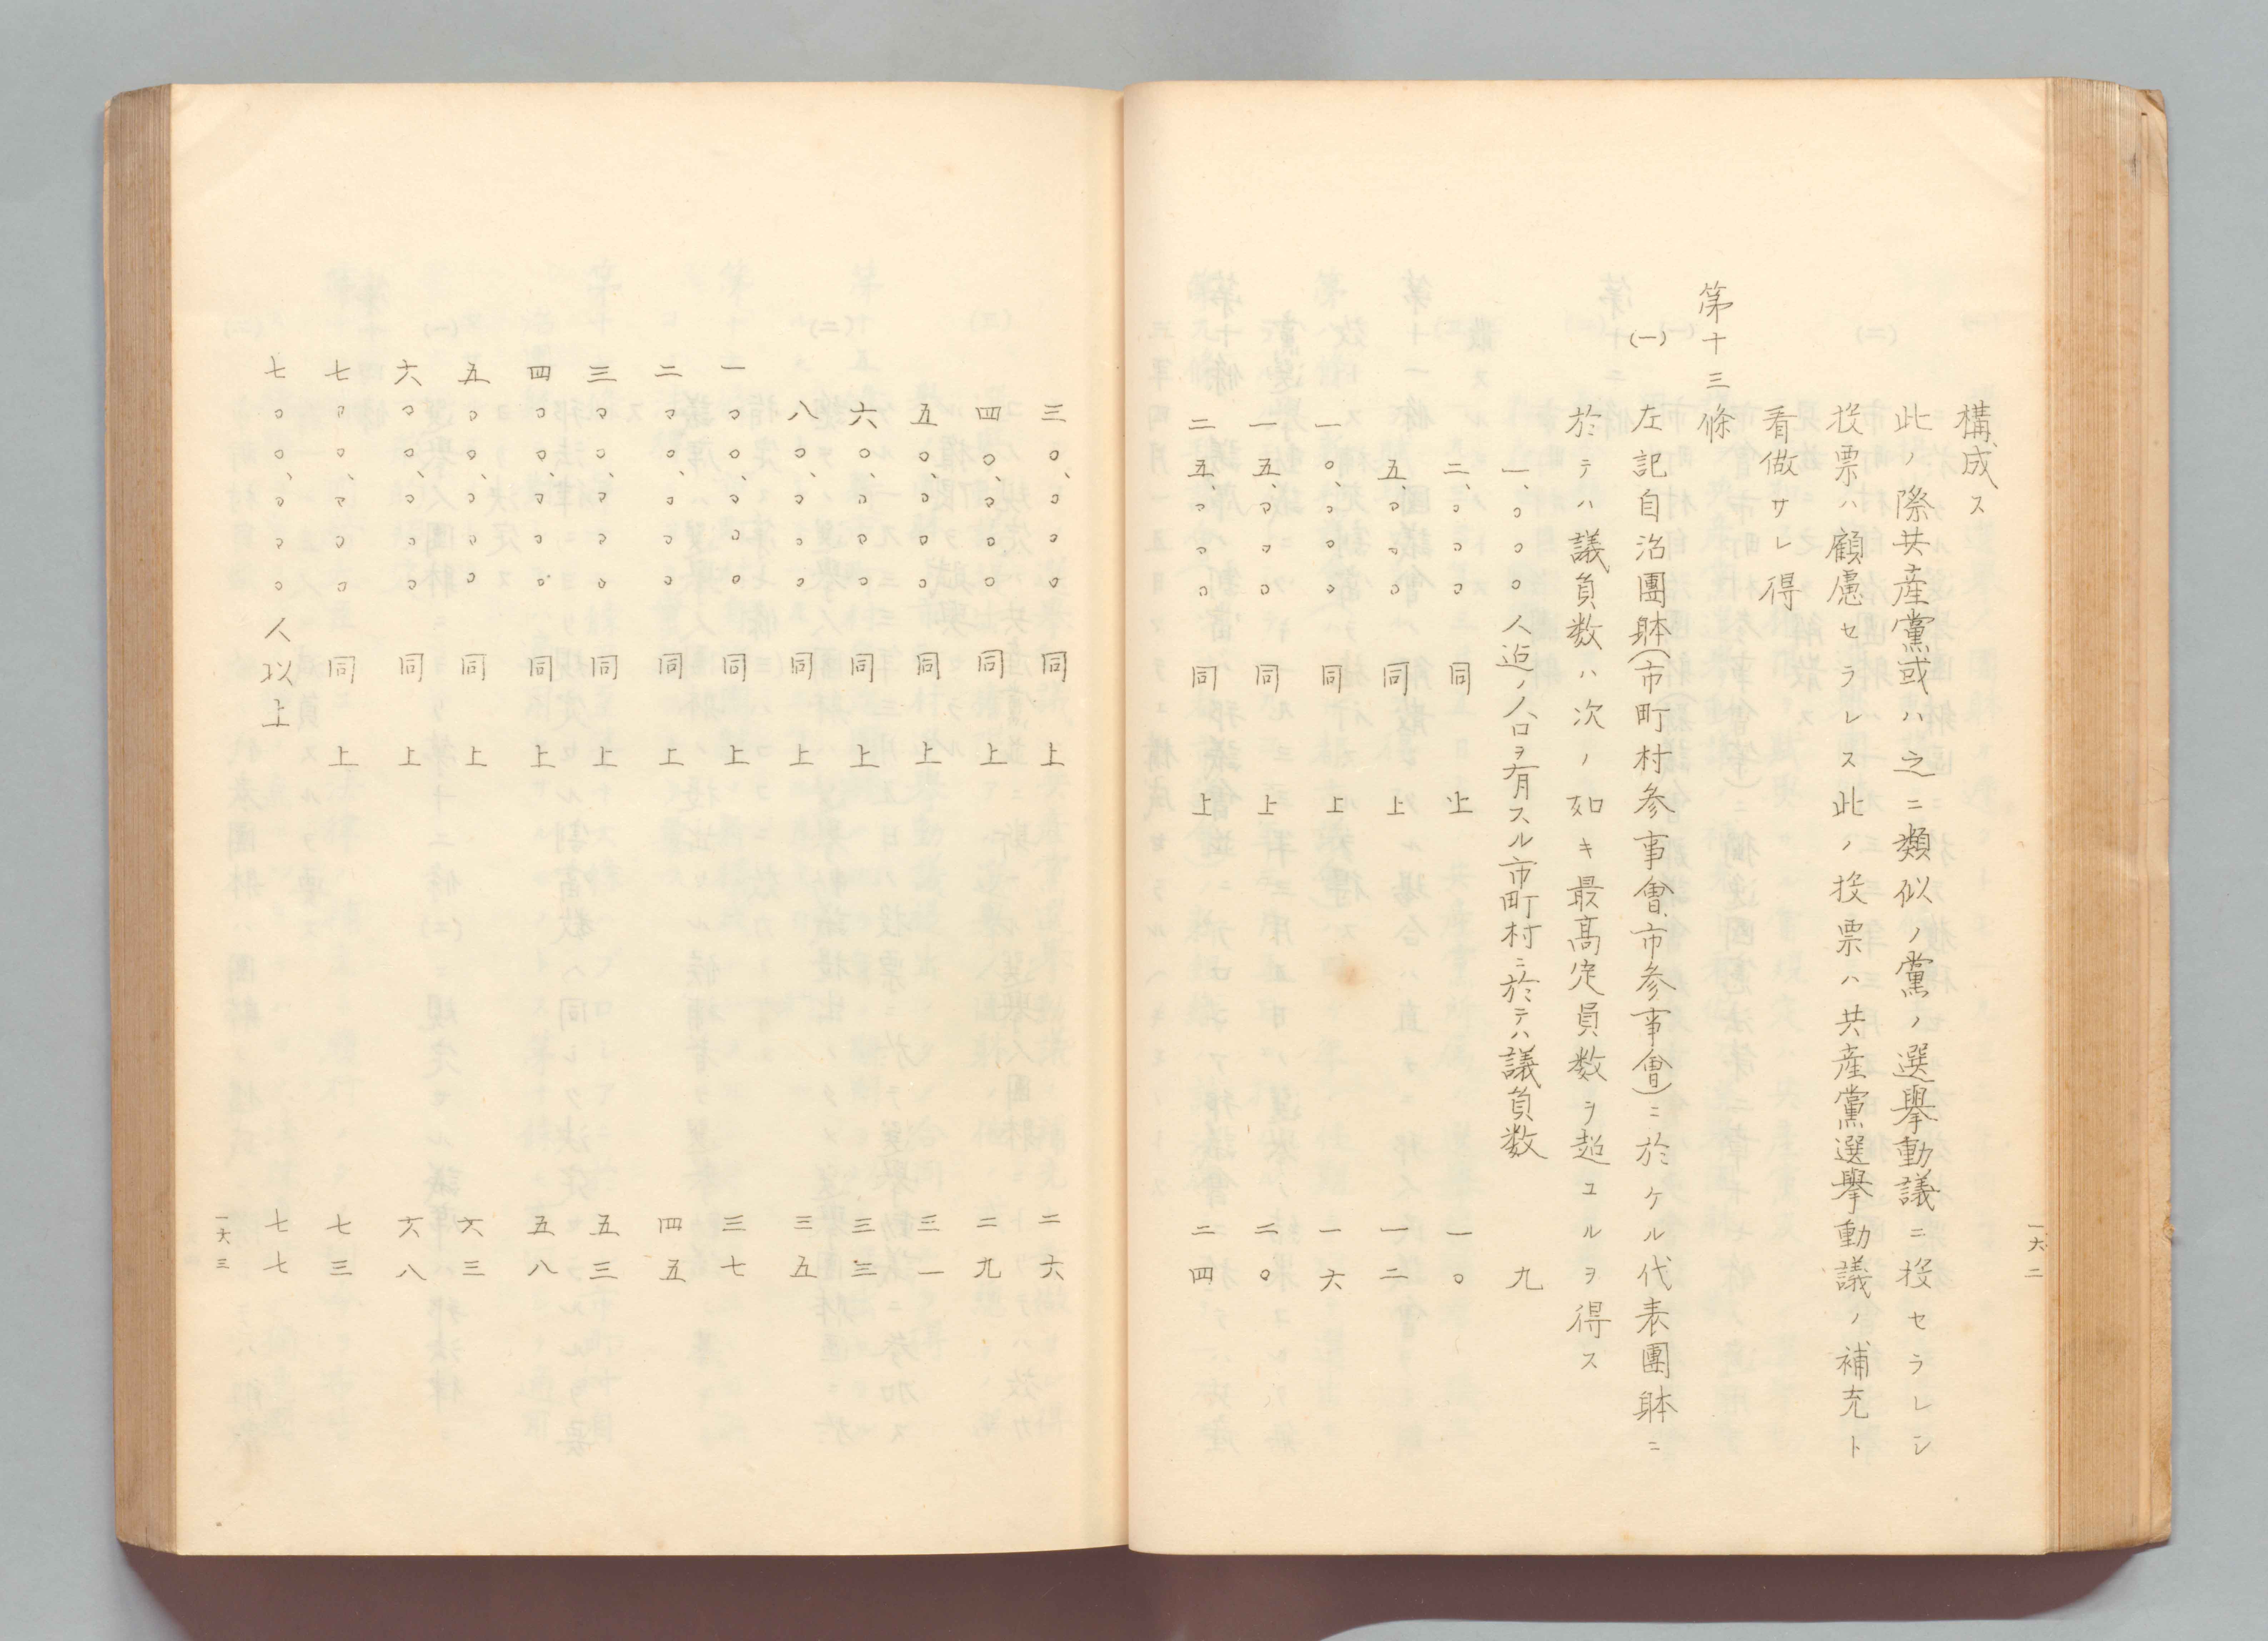 一六二
構成ス
此ノ際共産黨或ハ之ニ類似ノ黨ノ選擧動議ニ投セラレシ
投票ハ顧慮セラレス此ノ投票ハ共産黨選擧動議ノ補充ト
看做サレ得
第十三條
(一)左記自治團躰(市町村参事會、市参事會)ニ於ケル代表團躰ニ
於テハ議員数ハ次ノ如キ最高定員数ヲ超ユルヲ得ス
一、〇〇〇人迄ノ人口ヲ有スル市町村ニ於テハ議員数 九
二、〇〇〇 同上 一〇
五、〇〇〇 同上 一二
一〇、〇〇〇 同上 一六
一五、〇〇〇 同上 二〇
二五、〇〇〇 同上 二四
三〇、〇〇〇 同上 二六
四〇、〇〇〇 同上 二九
五〇、〇〇〇 同上 三一
六〇、〇〇〇 同上 三三
八〇、〇〇〇 同上 三五
一〇〇、〇〇〇 同上 三七
二〇〇、〇〇〇 同上 四五
三〇〇、〇〇〇 同上 五三
四〇〇、〇〇〇 同上 五八
五〇〇、〇〇〇 同上 六三
六〇〇、〇〇〇 同上 六八
七〇〇、〇〇〇 同上 七三
七〇〇、〇〇〇人以上 七七
一六三